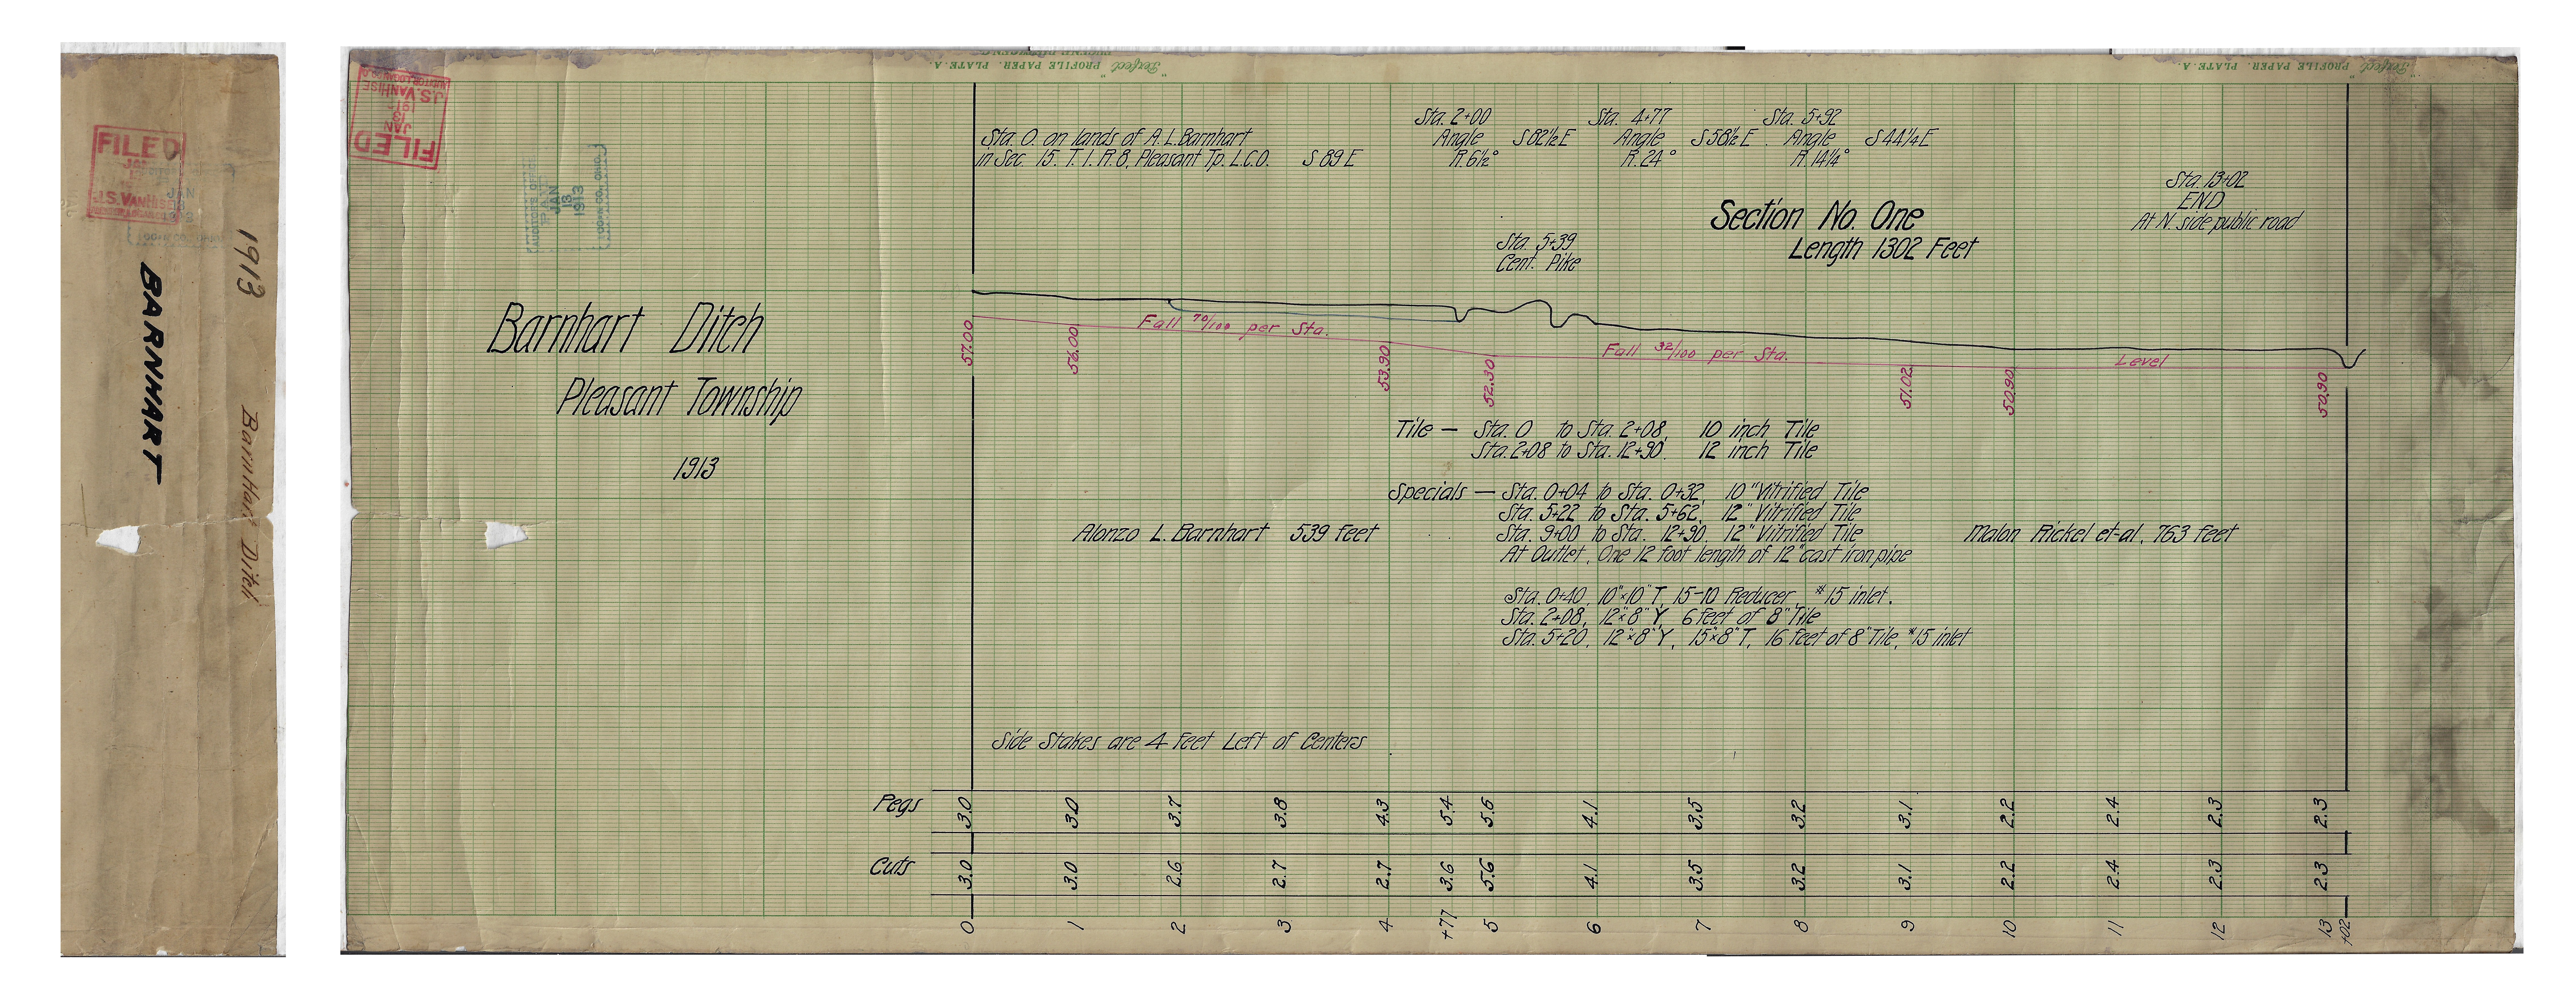 FILED
JAN
J.S. VANHISE
1913
BARNHART
Barnhart Ditch
"Perfect" PROFILE PAPER. PLATE A.
"Perfect" PROFILE PAPER. PLATE A.
FILED
JAN
13
1913
J.S. VANHISE
AUDITOR LOGAN CO. O.
AUDITOR'S OFFICE
JAN
13
1913
LOGAN CO. OHIO.
Sta. 0. on lands of A.L. Barnhart
in Sec 15. T. 1. R. 8. Pleasant Tp. L.C.O. S 89 E
Sta. 2+00
Angle S 82½ E
R. 6½°
Sta. 4+77
Angle S 58½ E
R. 24°
Sta. 5+92
Angle S 44¼ E
R. 14¼°
Sta. 13+02
END
At N. side public road
Section No. One
Length 1302 Feet
Sta. 5+39
Cent. Pike
Barnhart Ditch
Pleasant Township
1913
Fall 70/100 per Sta.
Fall 32/100 per Sta.
Level
57.00 56.00 53.90 52.30 51.02 50.90 50.90
Tile — Sta. 0 to Sta. 2+08, 10 inch Tile
Sta. 2+08 to Sta. 12+90. 12 inch Tile
Specials — Sta. 0+04 to Sta. 0+32, 10" Vitrified Tile
Sta. 5+22 to Sta. 5+62, 12" Vitrified Tile
Sta. 9+00 to Sta. 12+90. 12" Vitrified Tile
At Outlet, One 12 foot length of 12" cast iron pipe
Alonzo L. Barnhart 539 feet
Malon Rickel et-al, 763 feet
Sta. 0+40, 10"×10" T, 15-10 Reducer #15 inlet.
Sta. 2+08, 12"×8" Y, 6 feet of 8" Tile
Sta. 5+20, 12"×8" Y, 15"×8" T, 16 feet of 8" Tile, #15 inlet
Side Stakes are 4 feet Left of Centers
Pegs 3.0 3.0 3.7 3.8 4.3 5.4 5.6 4.1 3.5 3.2 3.1 2.2 2.4 2.3 2.3
Cuts 3.0 3.0 2.6 2.7 2.7 3.6 5.6 4.1 3.5 3.2 3.1 2.2 2.4 2.3 2.3
0 1 2 3 4 +77 5 6 7 8 9 10 11 12 13 +02